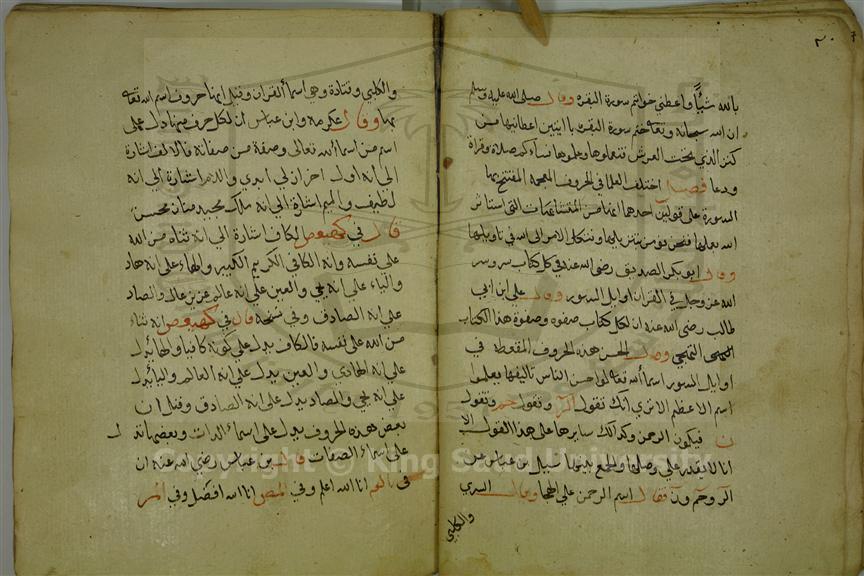 بالله شيئًا واعطي خواتم سورة البقرة وقال صلى الله عليه وسلم
ان الله سبحانه وتعا ختم سورة البقرة بايتين اعطانيهما من
كنز الذي تحت العرش فتعلموها وعلموها نساءكم صلاة وقراة
ودعا فصل اختلف العلما في الحروف المعجمة المفتتح بها
السورة على قولين احدهما انها من المتشابهات التي استاثر
الله بعلمها فنحن نؤمن بتنزيلها ونتكل الامر الى الله في تاويلها
وقال ابو بكر الصديق رضي الله عنه في كل كتاب سر وسر
الله عز وجل في القران اوايل السور وقال علي ابن ابي
طالب رضي الله عنه ان لكل كتاب صفوه وصفوة هذا الكتاب
التهجي وقال الحسن هذه الحروف المقطعة في
اوايل السور اسما الله تعا لو احسن الناس تاليفها يعلموا
اسم الاعظم الا ترى انك تقول الر وتقول حم وتقول
ن فيكون الرحمن وكذلك سايرها على هذا القول الا
انا لا نقدر على وصلها والجمع بينها سيل بن عباس عن
الر وحم ون فقال اسم الرحمن على الهجا وقال السدي
والكلبي
والكلبي وقتادة وهي اسما القران وقيل انها حروف اسم الله تعا
بها وقال عكرمة وابن عباس ان لكل حرف منها دل على
اسم من اسما الله تعالى وصفة من صفاته فالالف اشارة
الى انه اول اخر ازلي ابدي واللام اشارة الى انه
لطيف والميم اشارة الى انه ملك مجيد منان محسن
قال في كهيعص الكاف اشارة الى انه ثناه من الله
على نفسه وانه الكافي الكريم الكبير والهاء على انه هاد
والياء على انه حي والعين على انه عالم عزيز عال والصاد
على انه الصادق وفي نسخة قال في كهيعص انه ثناء
من الله على نفسه فالكاف يدل على كونه كافيا والها يدل
على انه الهادي والعين يدل على انه العالم واليا يدل
على انه حي والصاد يدل على انه الصادق وقيل ان
بعض هذه الحروف يدل على اسماء الذات وبعضها تدل
على اسماء الصفات قال بن عباس رضي الله عنه ان
في الم انا الله اعلم وفي المص انا الله افضل وفي المر
Copyright © King Saud University
1957